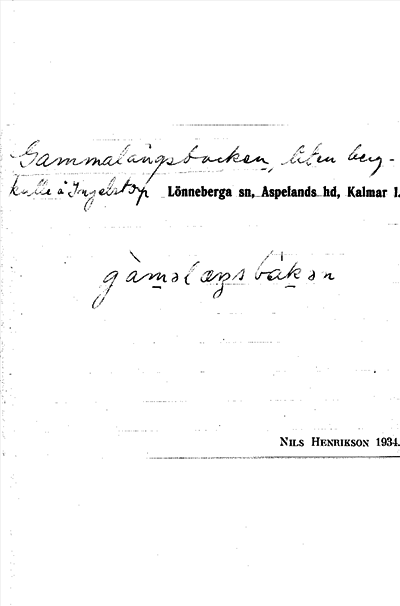 Gammalängsbacken, liten berg-
kulle å Ingelstorp Lönneberga sn, Aspelands hd, Kalmar l.
gàmalæŋsbákən
NILS HENRIKSON 1934.